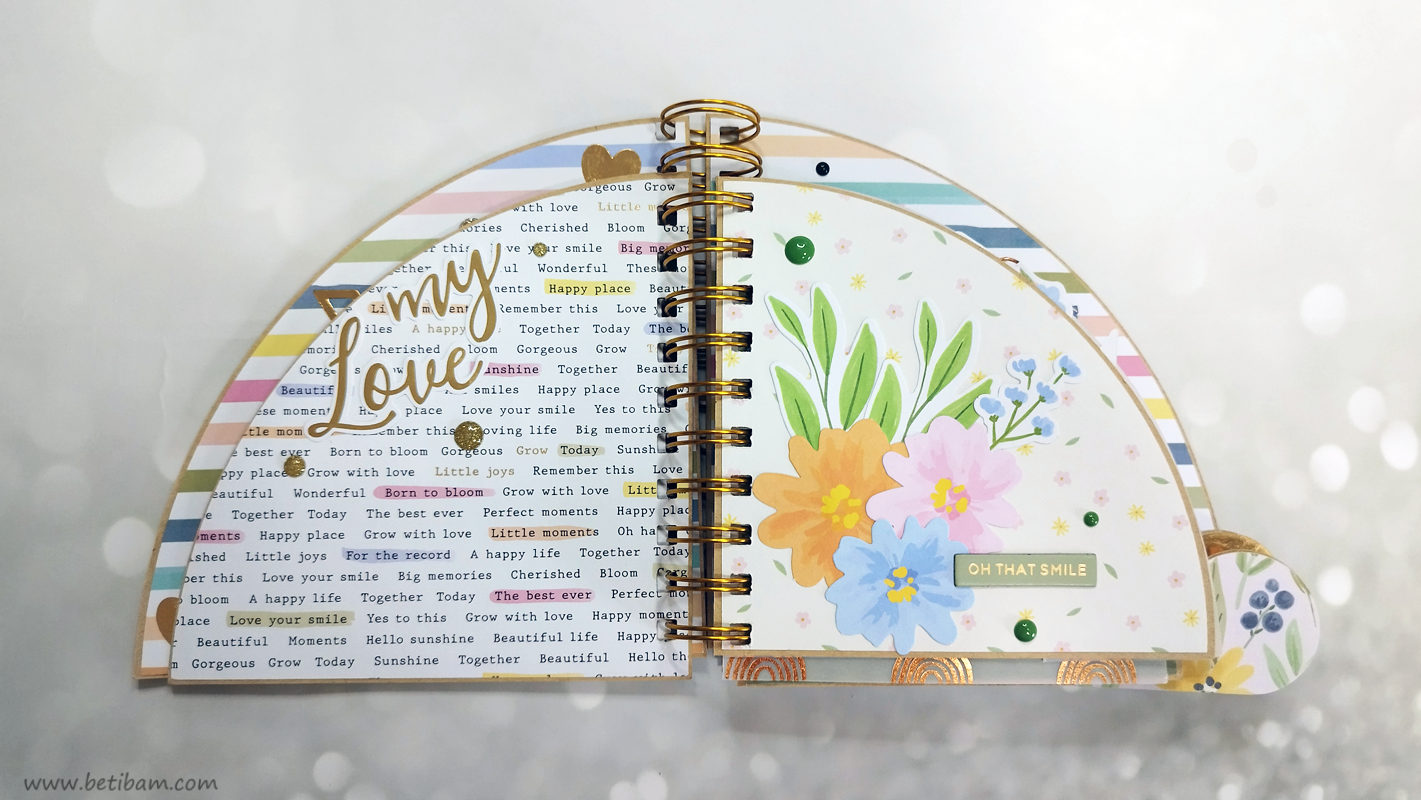 Gorgeous Grow
with love Little
Cherished Bloom
this your smile Big
Wonderful
Happy place
Remember this Love
A happy Together Today The
Cherished Gorgeous Grow
my
Love
sunshine Together
smiles Happy place
place Love your smile Yes to this
this loving life Big memories
best ever Born to bloom Gorgeous Grow Today
place Grow with love Little joys Remember this Love
Wonderful Born to bloom Grow with love
Together Today The best ever Perfect moments Happy
Happy place Grow with love Little moments Oh
Little joys For the record A happy life Together Today
this Love your smile Big memories Cherished Bloom
bloom A happy life Together Today The best ever Perfect
place Love your smile Yes to this Grow with love Happy moment
Beautiful Moments Hello sunshine Beautiful life Happy
Gorgeous Grow Today Sunshine Together Beautiful Hello
OH THAT SMILE
www.betibam.com